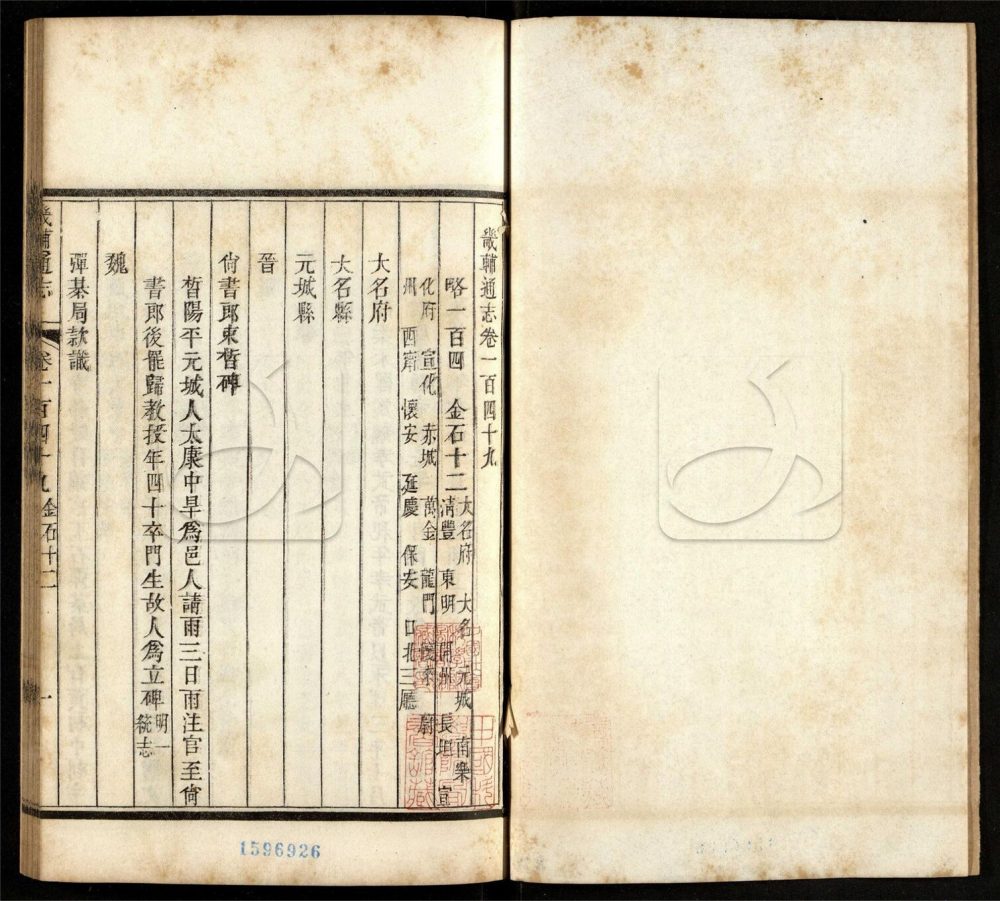 畿輔通志卷一百四十九
略一百四 金石十二
大名府 大名 元城 南樂
清豐 東明 開州 長垣 宣
化府 宣化 赤城 萬全 龍門 懷來 蔚
州 西甯 懷安 延慶 保安 口北三廳
大名府
大名縣
元城縣
晉
尙書郎束晳碑
晳陽平元城人太康中旱爲邑人請雨三日雨注官至尙
書郎後罷歸教授年四十卒門生故人爲立碑明一統志
魏
彈棊局款識
畿輔通志 卷一百四十九 金石十二 一
1596926